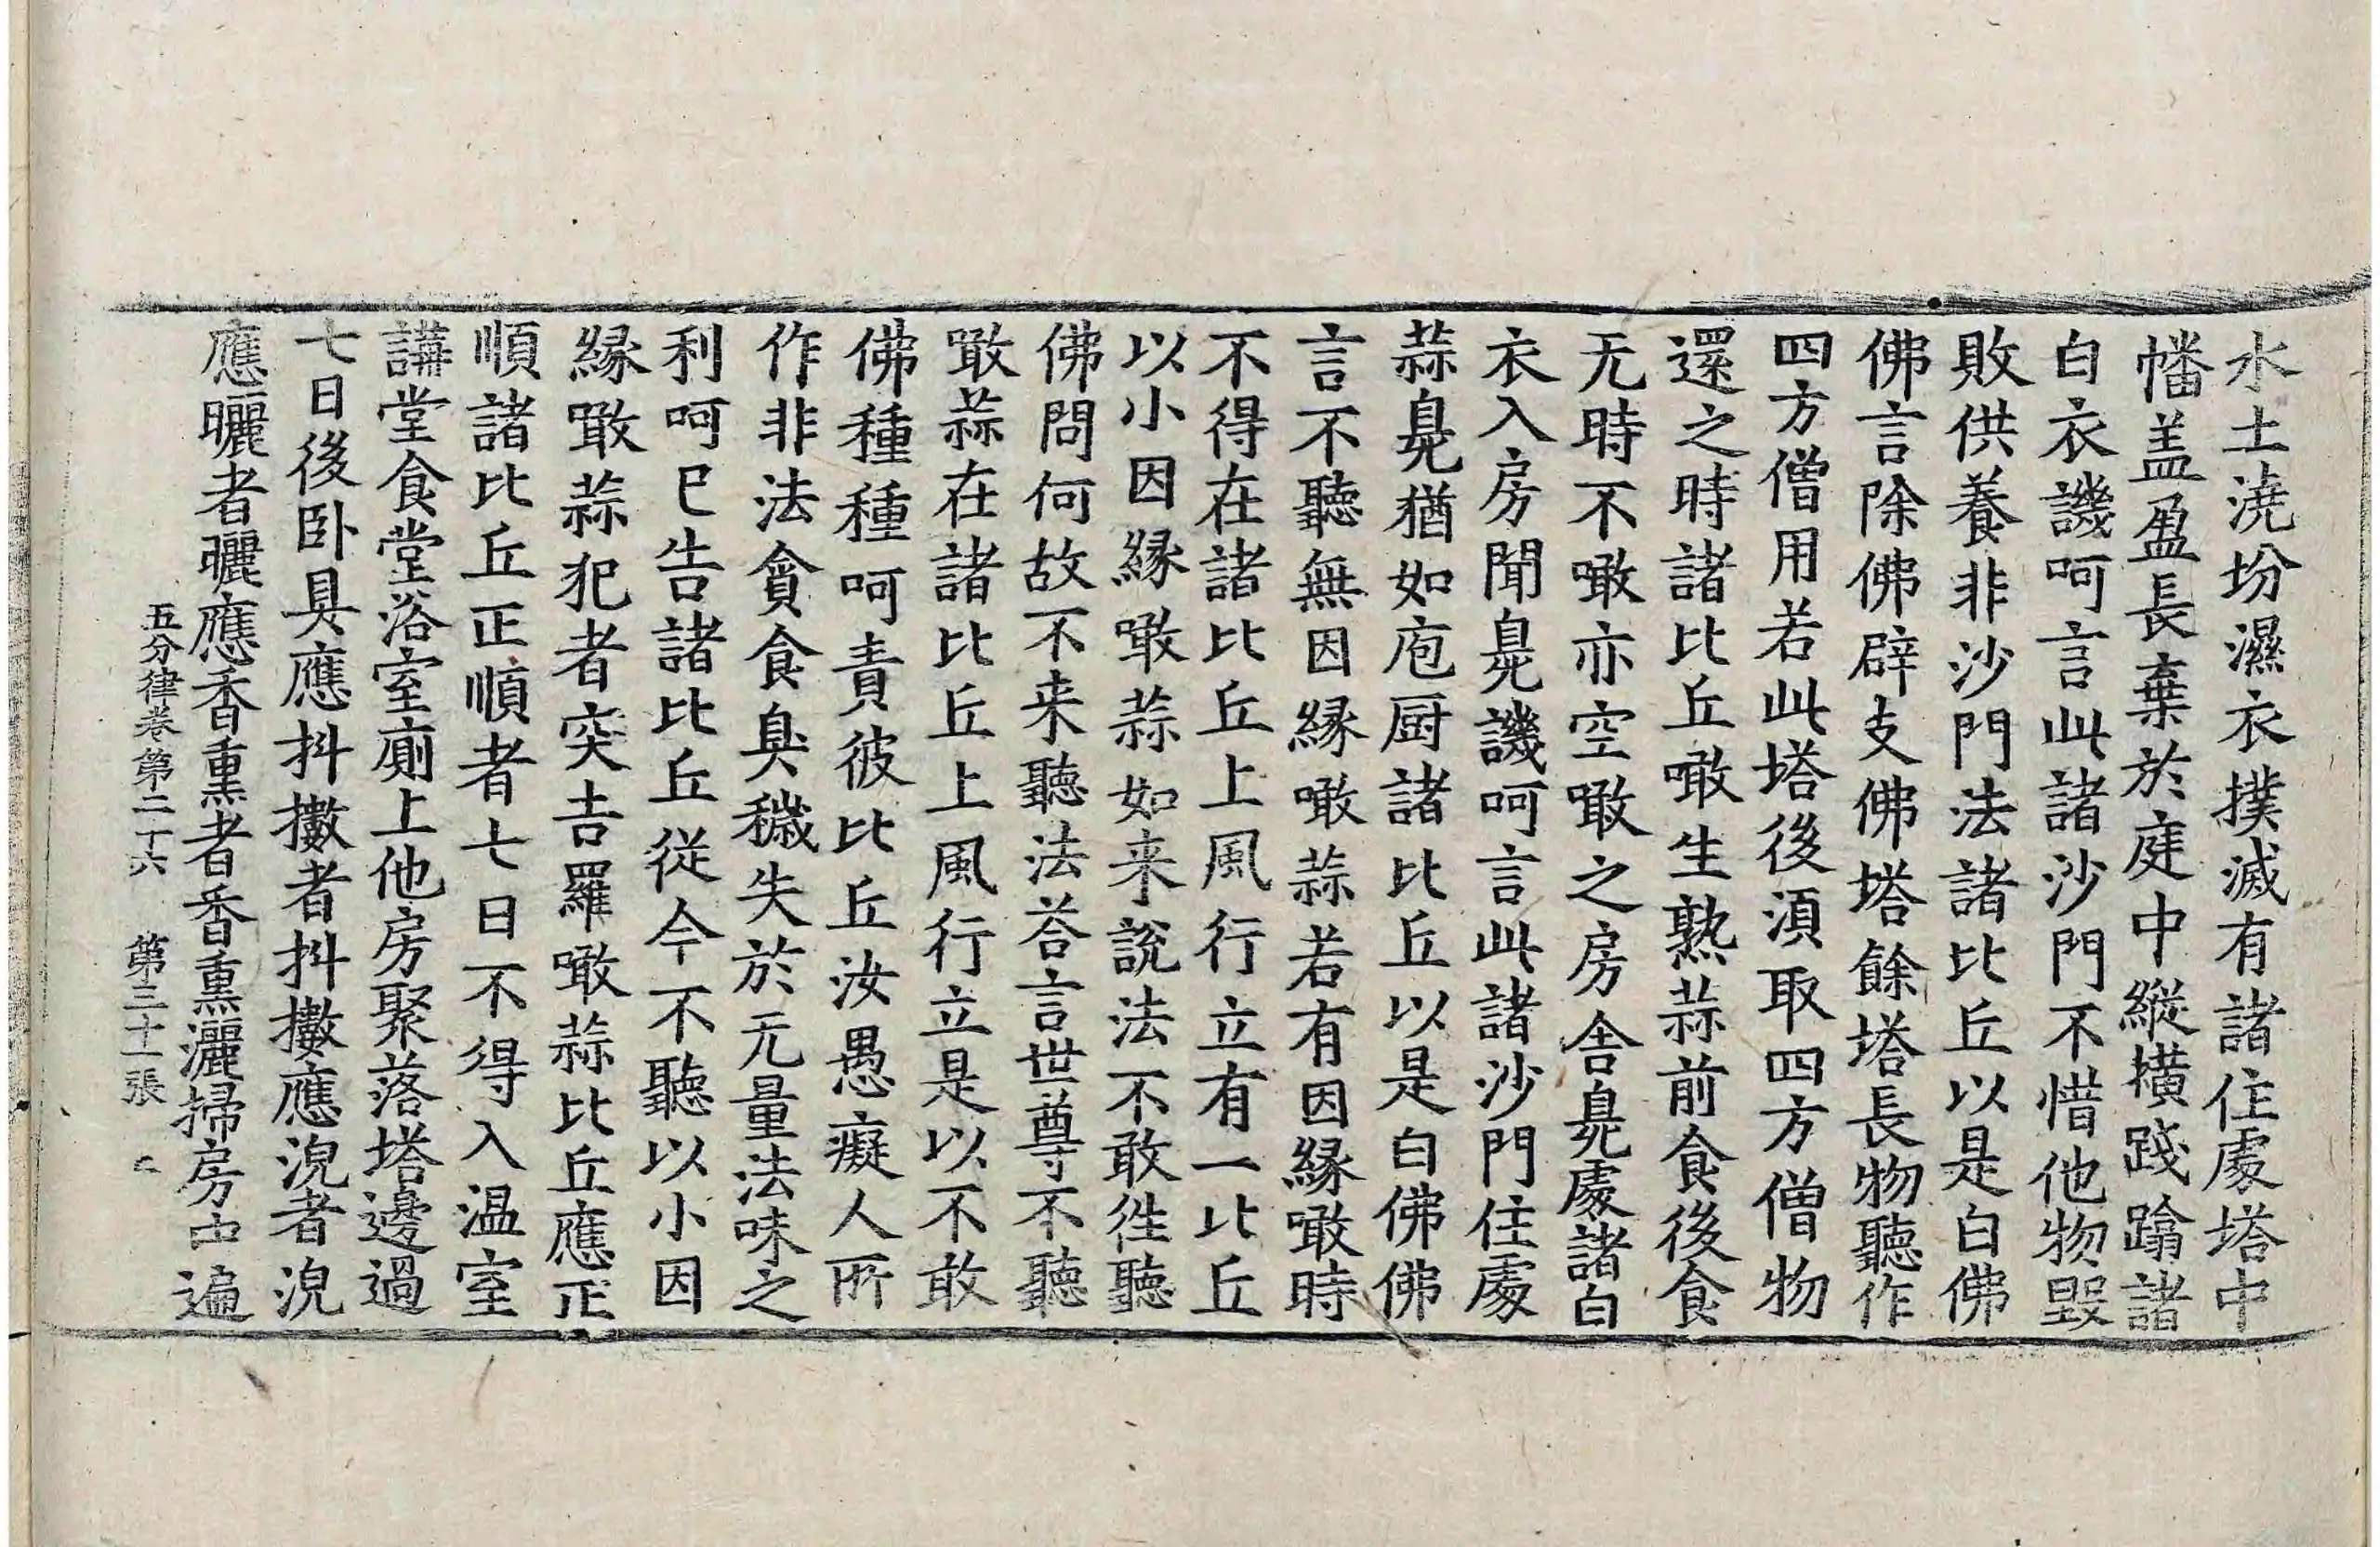 水土澆坌濕衣撲滅有諸住處塔中
幡盖盈長棄於庭中縱橫踐蹋諸
白衣譏呵言此諸沙門不惜他物毀
敗供養非沙門法諸比丘以是白佛
佛言除佛辟支佛塔餘塔長物聽作
四方僧用若此塔後湏取四方僧物
還之時諸比丘噉生熟蒜前食後食
无時不噉亦空噉之房舍臭處諸白
衣入房聞臭譏呵言此諸沙門住處
蒜臭猶如庖厨諸比丘以是白佛佛
言不聽無因縁噉蒜若有因縁噉時
不得在諸比丘上風行立有一比丘
以小因縁噉蒜如来說法不敢徃聽
佛問何故不来聽法荅言世尊不聽
噉蒜在諸比丘上風行立是以不敢
佛種種呵責彼比丘汝愚癡人所
作非法貪食臭穢失於无量法味之
利呵已告諸比丘從今不聽以小因
縁噉蒜犯者突吉羅噉蒜比丘應正
順諸比丘正順者七日不得入温室
講堂食堂浴室廁上他房聚落塔邊過
七日後卧具應抖擻者抖擻應浣者浣
應曬者曬應香熏者香熏灑掃房中遍
五分律卷第二十六 第三十一張